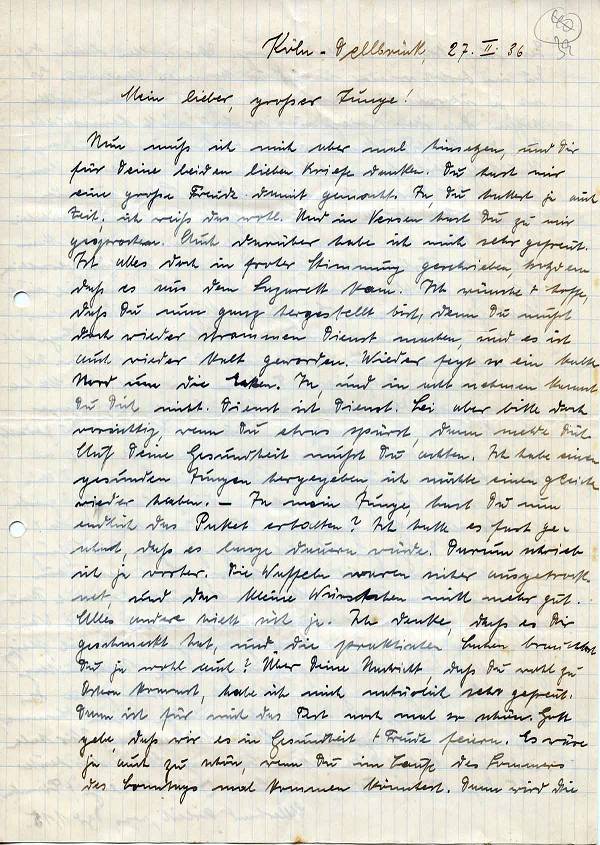 Köln-Dellbrück, 27. II. 36
Mein lieber, großer Junge!
Nun muß ich mich aber mal hinsetzen, und Dir
für Deine beiden lieben Briefe danken. Du hast mir
eine große Freude damit gemacht. Ja, Du hattest ja auch
Zeit, ich weiß das wohl. Und in Versen hast Du zu mir
gesprochen. Auch darüber habe ich mich sehr gefreut.
Ist alles doch in froher Stimmung geschrieben, trotzdem
daß es aus dem Lazarett kam. Ich wünsche & hoffe,
daß Du nun ganz hergestellt bist, denn Du mußt
doch wieder strammen Dienst machen, und es ist
auch wieder kalt geworden. Wieder fegt so ein kalter
Nord um die Ecken. Ja, und in acht nehmen kannst
Du Dich nicht. Dienst ist Dienst. Sei aber bitte doch
vorsichtig, wenn Du etwas spürst, dann melde Dich.
Auf Deine Gesundheit mußt Du achten. Ich habe einen
gesunden Jungen hergegeben ich möchte einen gleichen
wieder haben. – Ja mein Junge, hast Du nun
endlich das Paket erhalten? Ich hatte es fast ge-
ahnt, daß es lange dauern würde. Darum schrieb
ich ja vorher. Die Waffeln waren sicher ausgetrock-
net, und das kleine Würstchen nicht mehr gut.
Alles andere hielt sich ja. Ich denke, daß es Dir
geschmeckt hat, und die praktischen Sachen brauchtest
Du ja wohl auch? Über Deine Nachricht, daß Du wohl zu
Ostern kommst, habe ich mich natürlich sehr gefreut.
Dann ist für mich das Fest noch mal so schön. Gott
gebe, daß wir es in Gesundheit & Freude feiern. Es wäre
ja auch zu schön, wenn Du im Laufe des Sommers
des Sonntags mal kommen könntest. Dann wird die